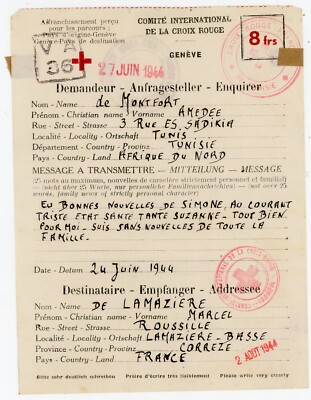 Affranchissement perçu
pour les parcours :
Pays d'origine-Genève
Genève-Pays de destination
COMITÉ INTERNATIONAL
DE LA CROIX ROUGE
GENÈVE
8 frs
36
27 JUIN 1944
Demandeur - Anfragesteller - Enquirer
Nom - Name de MONTFORT
Prénom - Christian name - Vorname AMEDEE
Rue - Street - Strasse 3 RUE ES SADIKIA
Localité - Locality - Ortschaft TUNIS
Département - County - Provinz TUNISIE
Pays - Country - Land AFRIQUE DU NORD
MESSAGE A TRANSMETTRE - MITTEILUNG - MESSAGE
(25 mots au maximum, nouvelles de caractère strictement personnel et familial)
(nicht über 25 Worte, nur persönliche Familiennachrichten) (not over 25
words, family news of strictly personal character)
EU BONNES NOUVELLES DE SIMONE, AU COURANT
TRISTE ETAT SANTE TANTE SUZANNE - TOUT BIEN
POUR MOI - SUIS SANS NOUVELLES DE TOUTE LA
FAMILLE.
Date - Datum 24 Juin 1944
Destinataire - Empfanger - Addressee
Nom - Name DE LAMAZIÈRE
Prénom - Christian name - Vorname MARCEL
Rue - Street - Strasse ROUSSILLE
Localité - Locality - Ortschaft LAMAZIERE-BASSE
Province - County - Provinz CORREZE
Pays - Country - Land FRANCE
2 AOUT 1944
Bitte sehr deutlich schreiben Prière d'écrire très lisiblement Please write very clearly